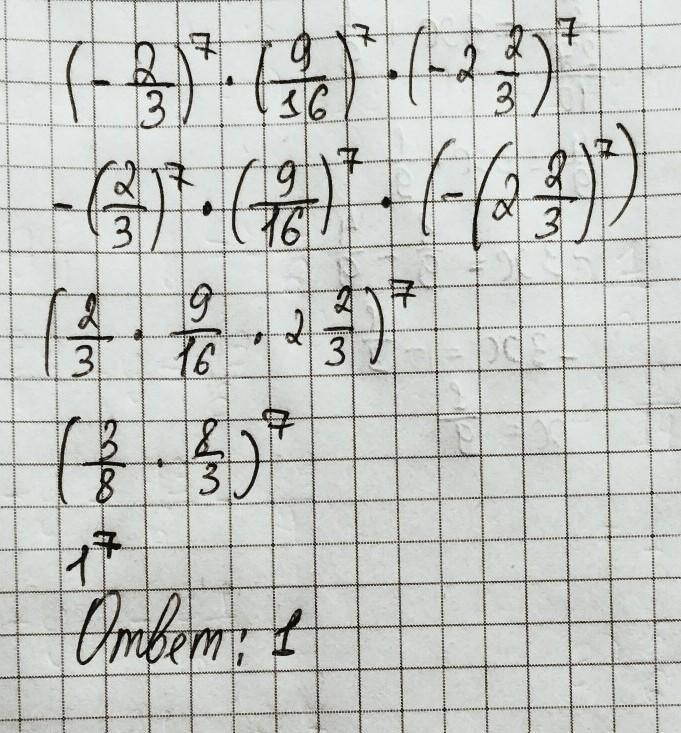 (-2/3)^7 · (9/16)^7 · (-2 2/3)^7
-(2/3)^7 · (9/16)^7 · (-(2 2/3)^7)
(2/3 · 9/16 · 2 2/3)^7
(3/8 · 8/3)^7
1^7
Ответ: 1